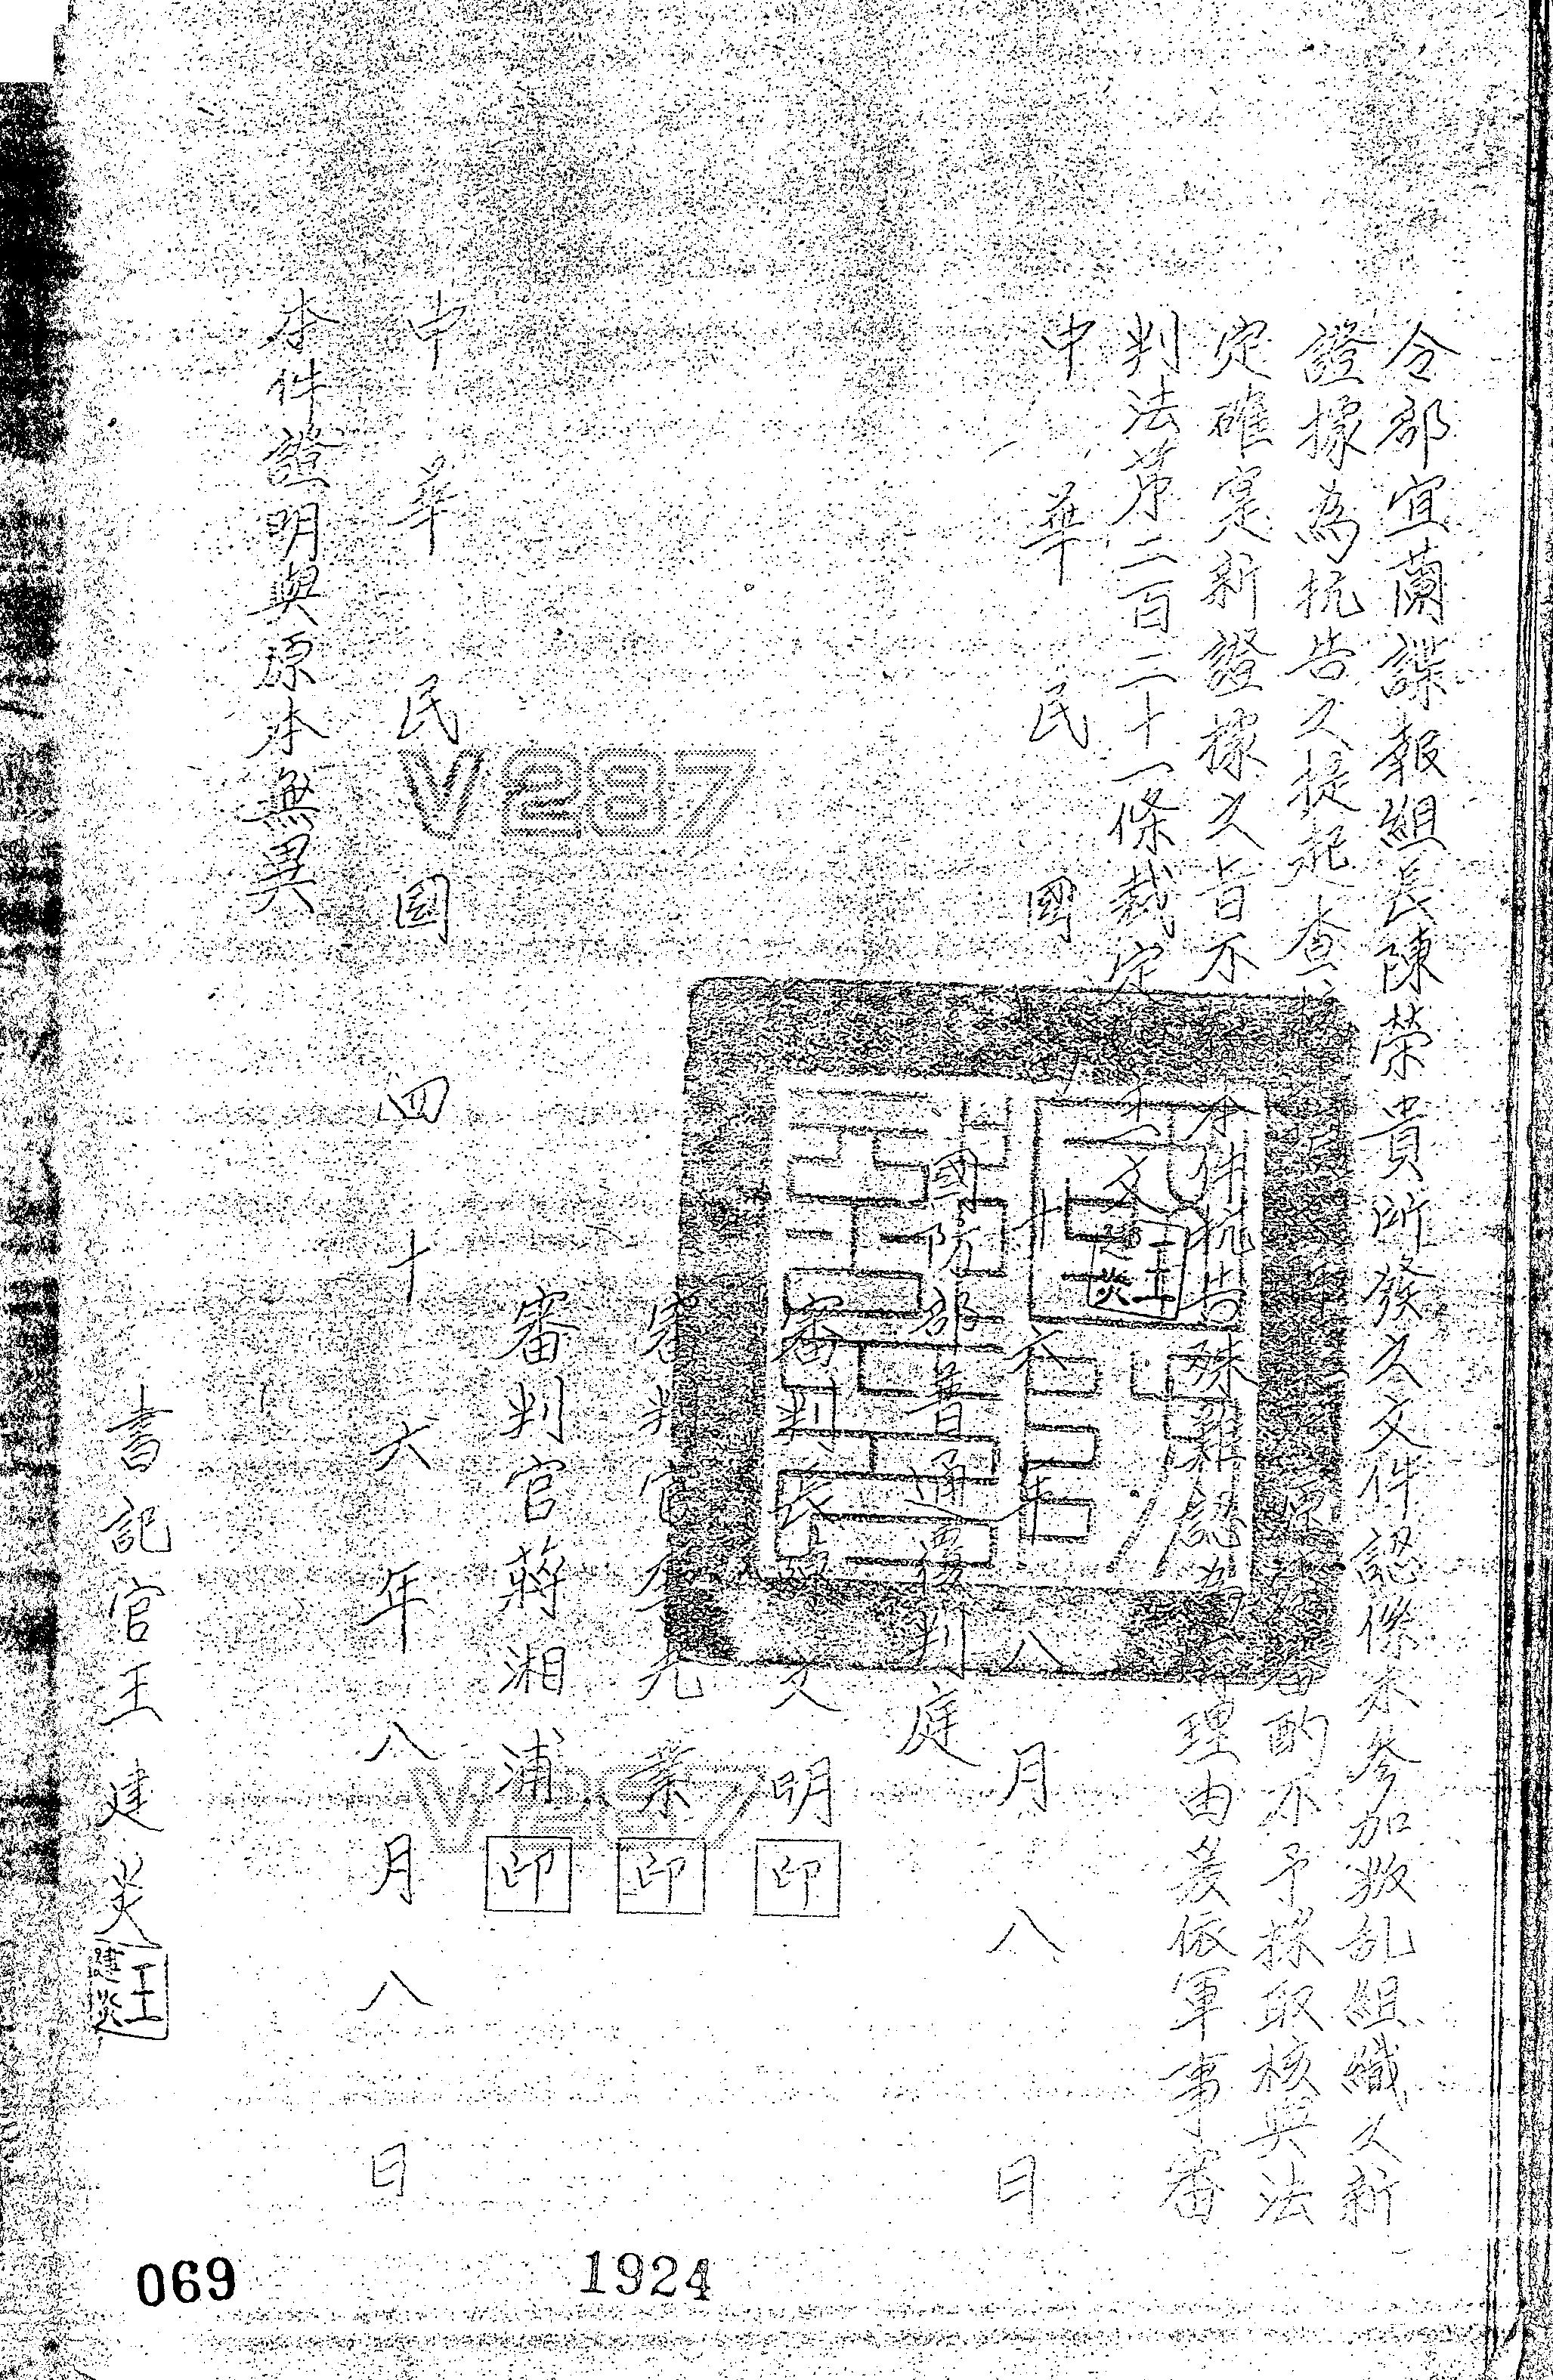 令部宜蘭諜報組長陳榮貴所發之文件認係未參加叛乱組織之新
證據為抗告之提起查 酌不予採取核與法
定確定新證據之旨不 本件抗告殊難認為 理由爰依軍事審
判法第二百二十一條裁定 主文
中華民國 十六年八月八日
國防部普通覆判庭
審判長 文明 印
審判官 元業 印
審判官 蔣湘浦 印
中華民國四十六年八月八日
本件證明與原本無異
書記官王建炎
王建炎
王建炎
V287
V287
069
1924